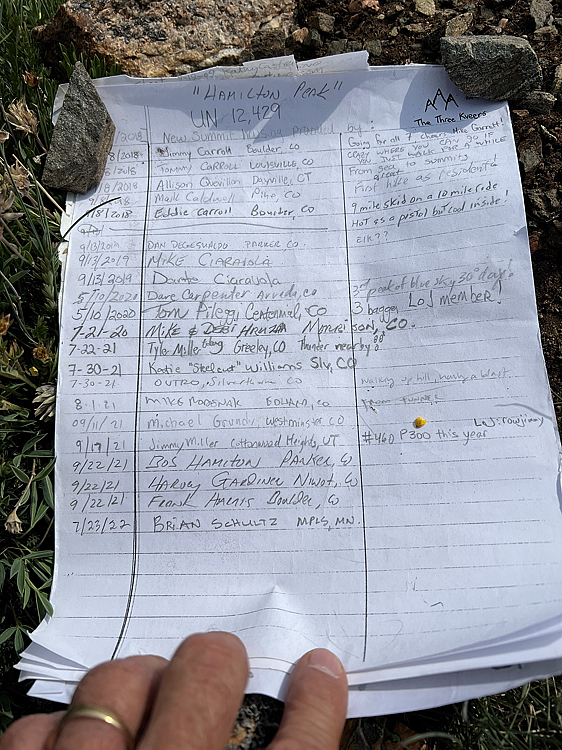 "HAMILTON Peak"
UN 12,429
The Three Kneers
2018 New Summit by:
8/2018 Jimmy Carroll Boulder, CO
8/2018 TOMMY CARROLL LOUISVILLE, CO
9/8/2018 Allison DAYVILLE, CT
9/8/2018 Mark Caldwell Pine, CO
9/8/2018 Eddie Carroll Boulder, CO
Going for all Cheers, Mike Garratt!
CRAZY WHERE YOU CAN GO IF
YOU JUST WALK
From sea to summit
great
First hike as residents
9 mile skid on a 10 mile ride
HOT as a pistol but cool inside!
ELK??
9/13/2019 DAN PARKER, CO
9/13/2019 MIKE CIARAVOLA
9/13/2019 Dante Ciaravola
5/10/2020 Dave Carpenter Arvada, CO
peak of blue sky 30 day!
5/10/2020 Tom Pilegg Centennial, CO 3 bagger LoJ member!
7-21-20 MIKE & DEBI MORRISON, CO.
7-22-21 Tyle Miller Greeley, CO Thunder nearby
7-30-21 Katie "Steelcut" Williams Slv, CO
7-30-21 OUTRO, Silverthorne CO walking uphill, having a blast
8-1-21 MIKE CO From
09/11/21 Michael Grundy Westminster CO
9/19/21 Jimmy Miller Cottonwood Heights, UT #460 P300 this year LoJ: rowjimmy
9/22/21 BOB HAMILTON PARKER, CO
9/22/21 HARVEY GARDINER NIWOT, CO
9/22/21 FRANK HARRIS Boulder, CO
7/23/22 BRIAN SCHULTZ MPLS, MN.